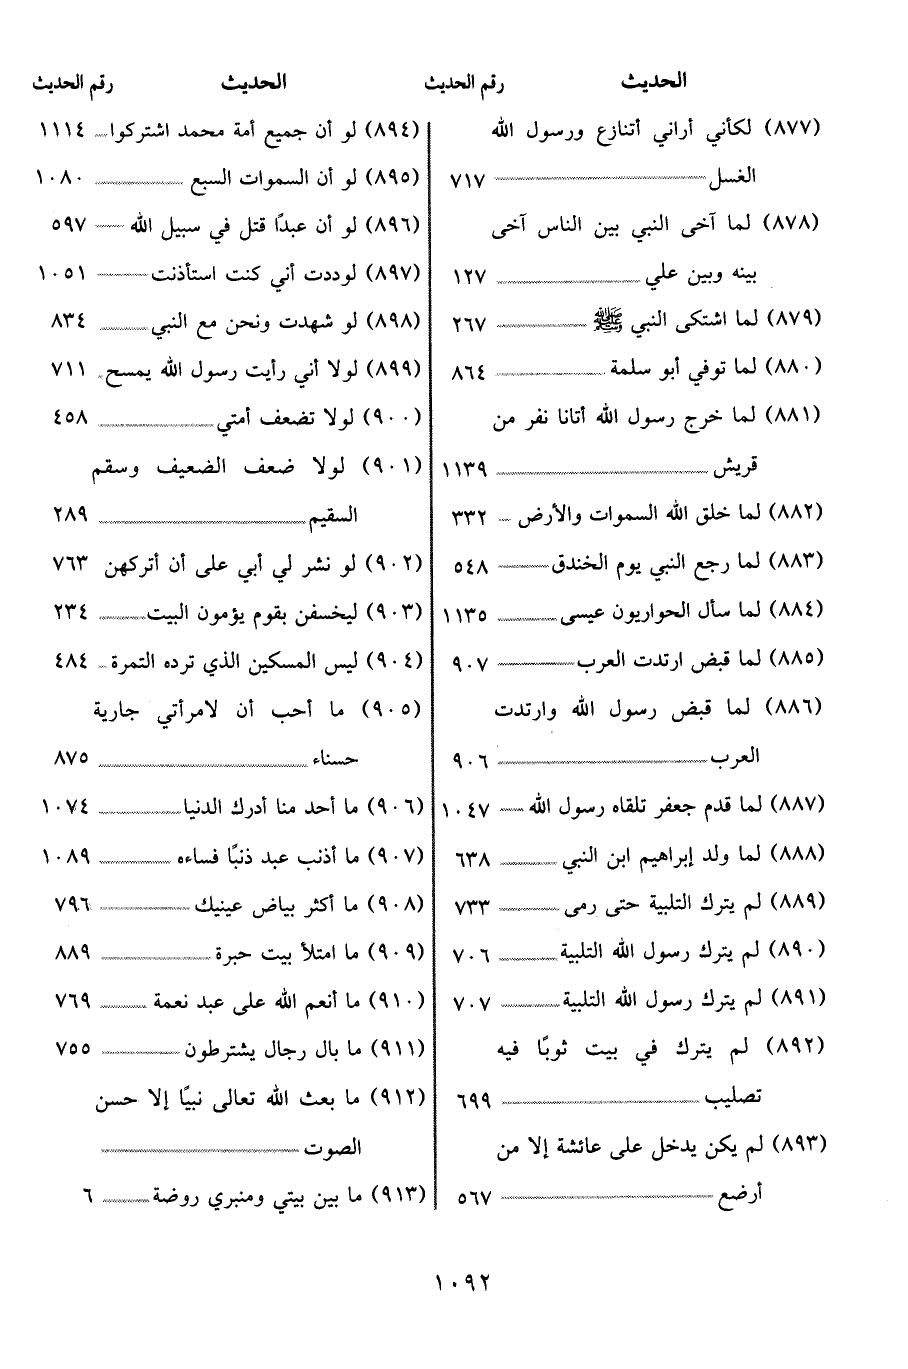 الحديث رقم الحديث
(٨٧٧) لكأني أراني أتنازع ورسول الله
الغسل ٧١٧
(٨٧٨) لما آخى النبي بين الناس آخى
بينه وبين علي ١٢٧
(٨٧٩) لما اشتكى النبي ﷺ ٢٦٧
(٨٨٠) لما توفي أبو سلمة ٨٦٤
(٨٨١) لما خرج رسول الله أتانا نفر من
قريش ١١٣٩
(٨٨٢) لما خلق الله السموات والأرض ٣٣٢
(٨٨٣) لما رجع النبي يوم الخندق ٥٤٨
(٨٨٤) لما سأل الحواريون عيسى ١١٣٥
(٨٨٥) لما قبض ارتدت العرب ٩٠٧
(٨٨٦) لما قبض رسول الله وارتدت
العرب ٩٠٦
(٨٨٧) لما قدم جعفر تلقاه رسول الله ١٠٤٧
(٨٨٨) لما ولد إبراهيم ابن النبي ٦٣٨
(٨٨٩) لم يترك التلبية حتى رمى ٧٣٣
(٨٩٠) لم يترك رسول الله التلبية ٧٠٦
(٨٩١) لم يترك رسول الله التلبية ٧٠٧
(٨٩٢) لم يترك في بيت ثوبًا فيه
تصليب ٦٩٩
(٨٩٣) لم يكن يدخل على عائشة إلا من
أرضع ٥٦٧
الحديث رقم الحديث
(٨٩٤) لو أن جميع أمة محمد اشتركوا ١١١٤
(٨٩٥) لو أن السموات السبع ١٠٨٠
(٨٩٦) لو أن عبدًا قتل في سبيل الله ٥٩٧
(٨٩٧) لوددت أني كنت استأذنت ١٠٥١
(٨٩٨) لو شهدت ونحن مع النبي ٨٣٤
(٨٩٩) لولا أني رأيت رسول الله يمسح ٧١١
(٩٠٠) لولا تضعف أمتي ٤٥٨
(٩٠١) لولا ضعف الضعيف وسقم
السقيم ٢٨٩
(٩٠٢) لو نشر لي أبي على أن أتركهن ٧٦٣
(٩٠٣) ليخسفن بقوم يؤمون البيت ٢٣٤
(٩٠٤) ليس المسكين الذي ترده التمرة ٤٨٤
(٩٠٥) ما أحب أن لامرأتي جارية
حسناء ٨٧٥
(٩٠٦) ما أحد منا أدرك الدنيا ١٠٧٤
(٩٠٧) ما أذنب عبد ذنبًا فساءه ١٠٨٩
(٩٠٨) ما أكثر بياض عينيك ٧٩٦
(٩٠٩) ما امتلأ بيت حبرة ٨٨٩
(٩١٠) ما أنعم الله على عبد نعمة ٧٦٩
(٩١١) ما بال رجال يشترطون ٧٥٥
(٩١٢) ما بعث الله تعالى نبيًا إلا حسن
الصوت
(٩١٣) ما بين بيتي ومنبري روضة ٦
١٠٩٢